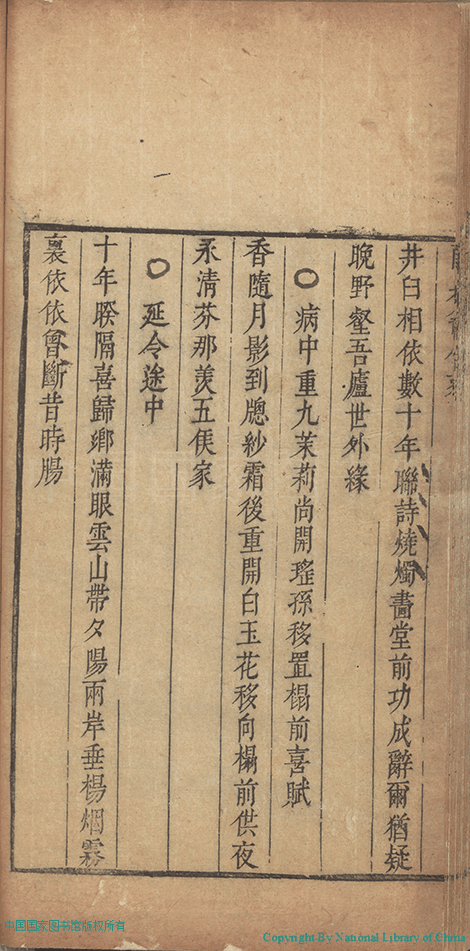 井臼相依數十年聯詩燒燭畵堂前功成辭爾猶疑
晚野壑吾廬世外緣
○病中重九茉莉尚開瑤孫移置榻前喜賦
香隨月影到牕紗霜後重開白玉花移向榻前供夜
永清芬那羨五侯家
○延令途中
十年暌隔喜歸鄉滿眼雲山帶夕陽兩岸垂楊烟霧
裏依依曾斷昔時腸
中国国家图书馆版权所有
Copyright By National Library of China